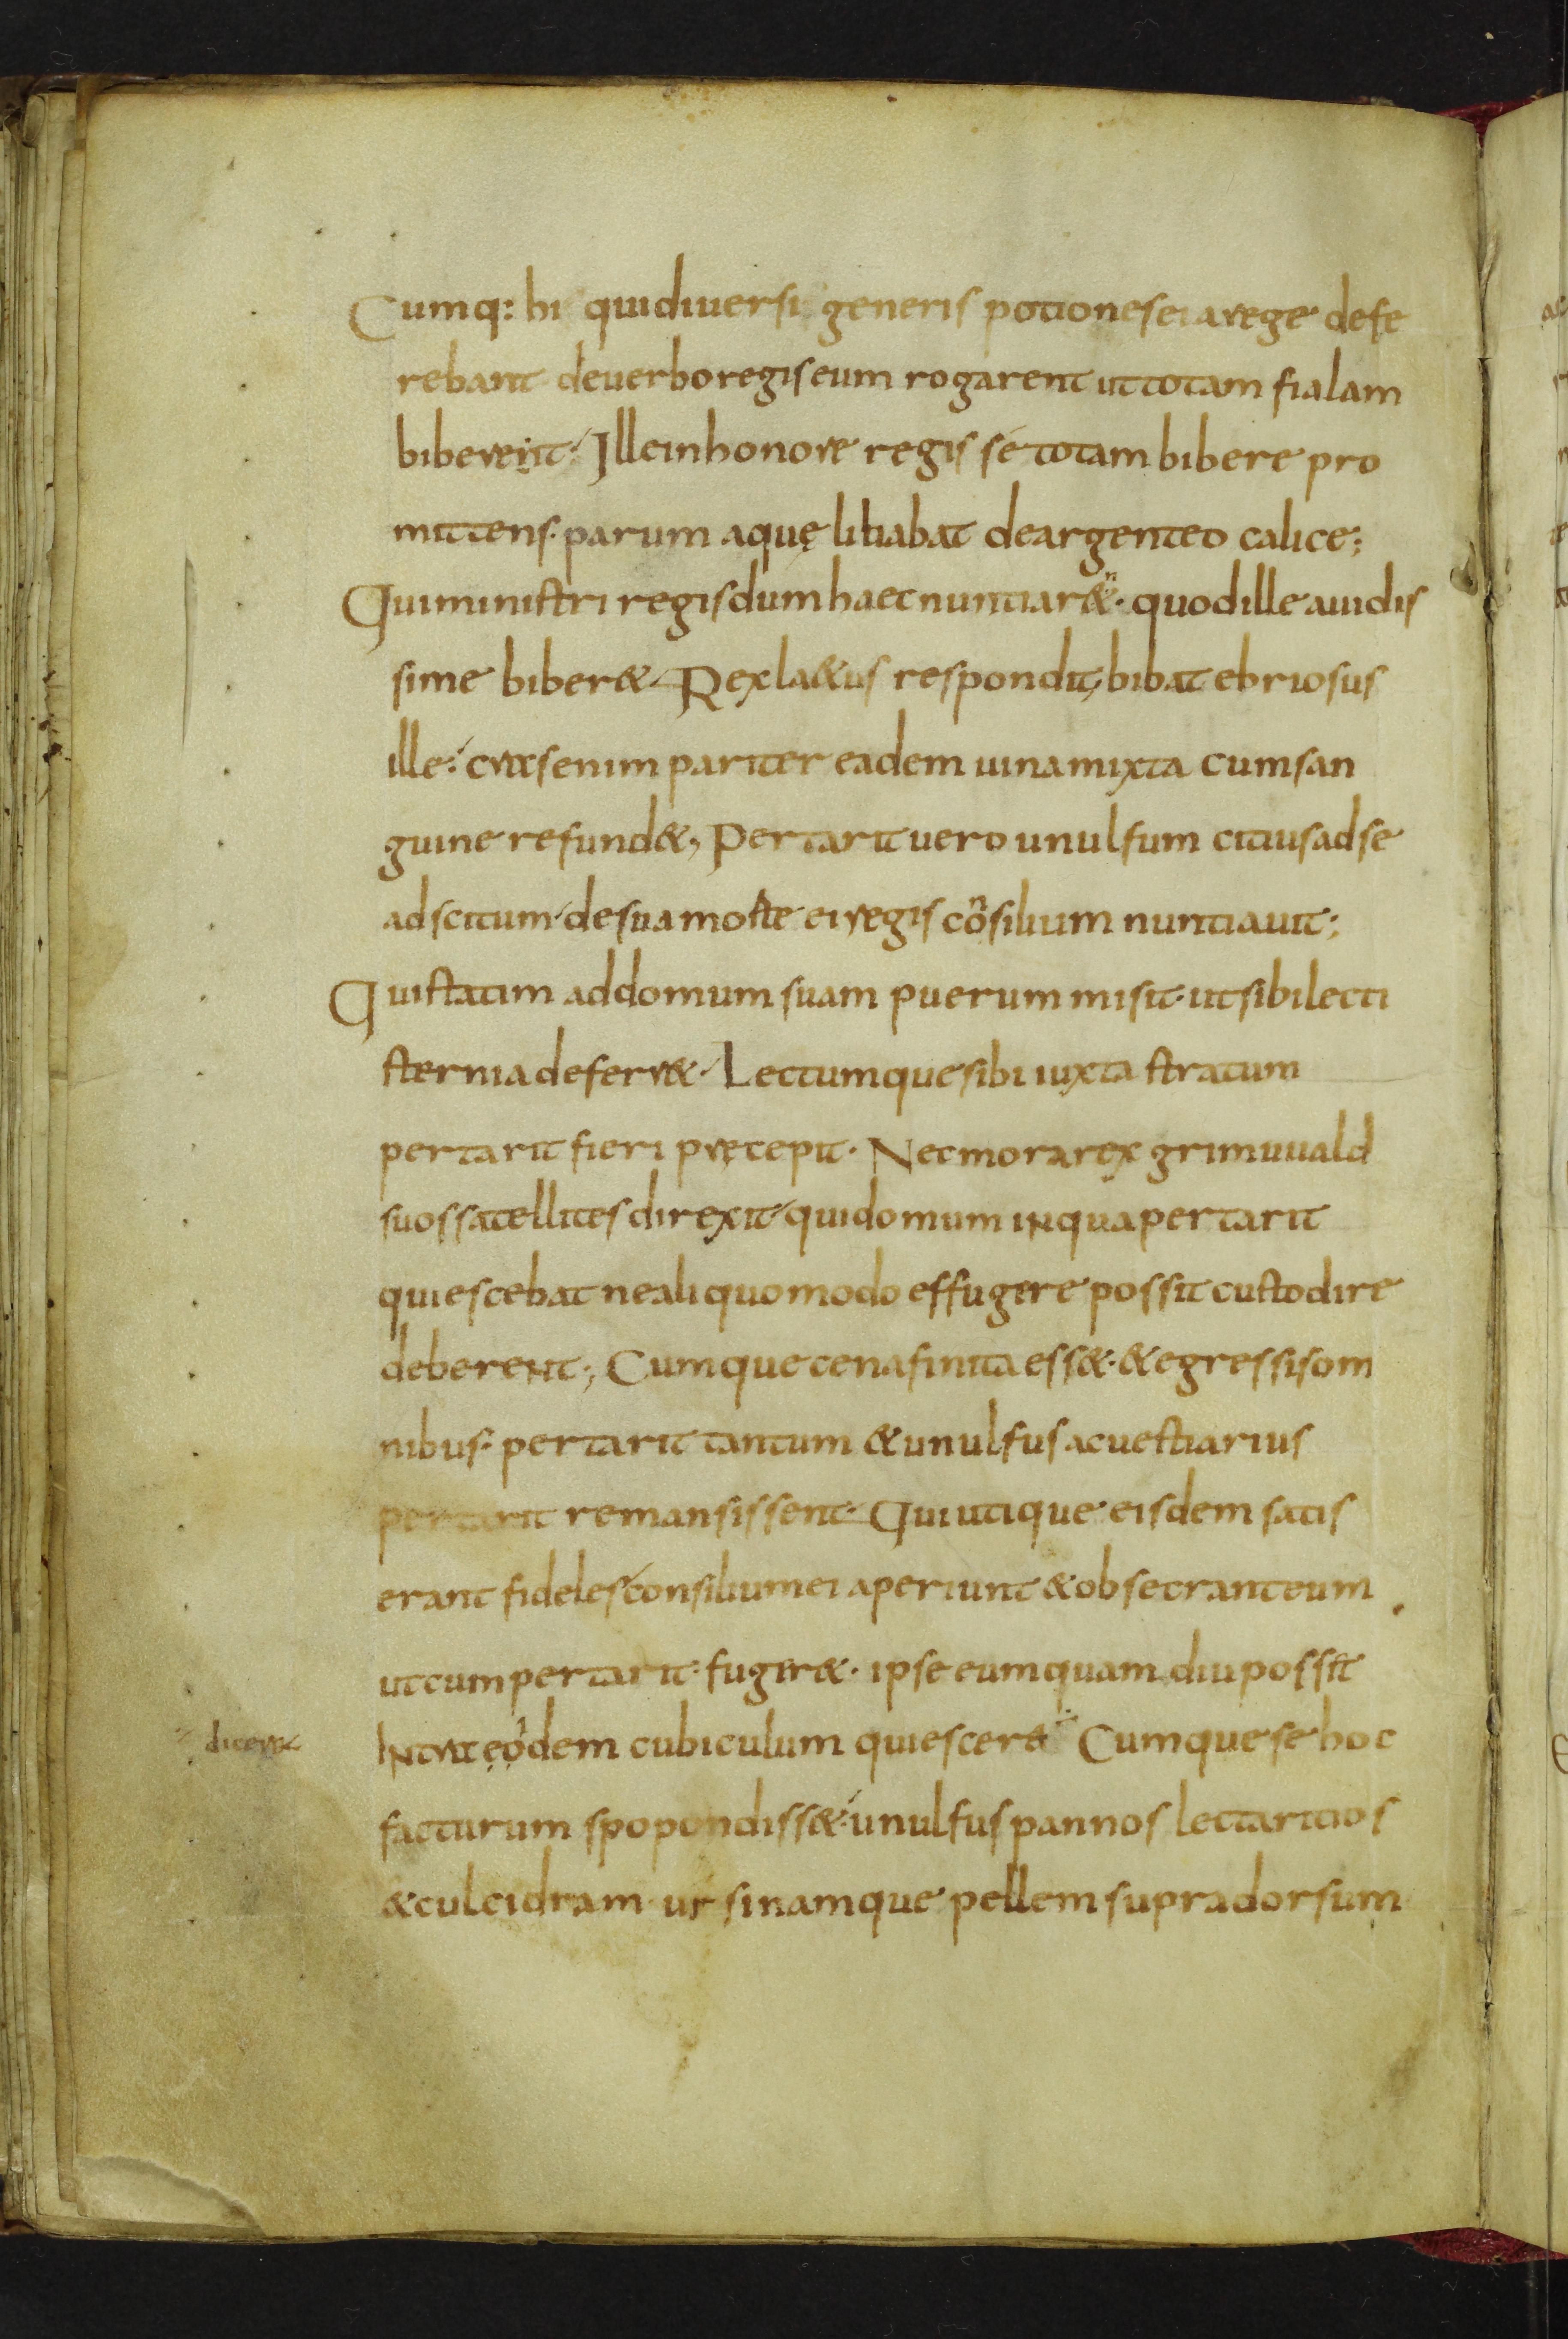 Cumq: hi qui diuersi generis potiones ei a rege defe
rebant de uerbo regis eum rogarent ut totam fialam
biberent. Ille in honore regis se totam bibere pro
mittens. parum aquę libabat de argenteo calice;
Qui ministri regis dum haec nuntiar&. quod ille auidis
sime biber&. Rex la&us respondit, bibat ebriosus
ille: cras enim pariter eadem uina mixta cum san
guine refund&, Pertarit uero unulfum citius ad se
adscitum de sua morte ei regis cõnsilium nuntiauit;
Qui statim ad domum suam puerum misit. ut sibi lecti
sternia deferr&. Lectumque sibi iuxta stratum
pertarit fieri pręcepit. Nec mora rex grimuuald
suos satellites direxit qui domum in qua pertarit
quiescebat ne aliquo modo effugere possit custodire
deberent; Cumque cena finita ess&. & egressis om
nibus. pertarit tantum & unulfus ac uestiarius
pertarit remansissent. Qui utique eisdem satis
erant fideles consilium ei aperiunt & obsecrant eum
ut cum pertarit fuger&. ipse eum quam diu possit
dicer&
intra eodem cubiculum quiescere Cumque se hoc
facturum spopondiss&. unulfus pannos lectaritios
& culcidram ursinamque pellem supra dorsum